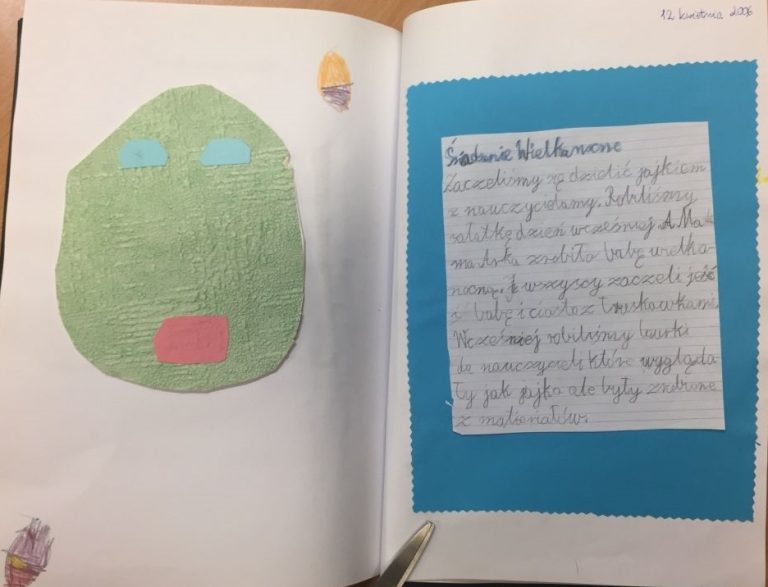 12 kwietnia 2006
Śniadanie Wielkanocne
Zaczeliśmy się dzielić jajkiem
z nauczycielamy. Robiliśmy
sałatkę dzień wcześniej. A Ma
ma Arka zrobiła babę wielka-
nocną. I wszyscy zaczeli jeść
babę i ciasto z truskawkami.
Wcześniej robiliśmy laurki
do nauczycieli które wygląda
ły jak jajka ale były zrobione
z materiałów.